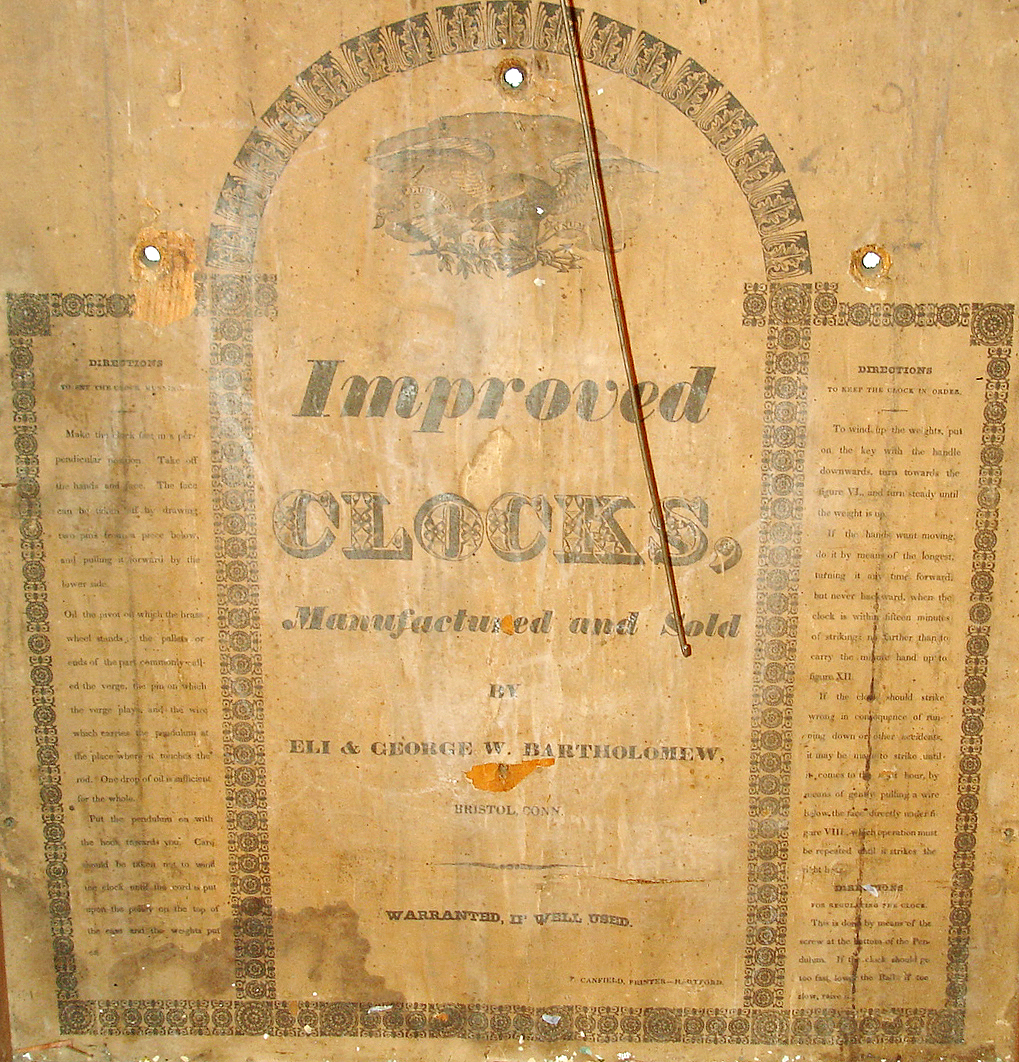 E PLURIBUS UNUM
Improved
CLOCKS,
Manufactured and Sold
BY
ELI & GEORGE W. BARTHOLOMEW,
BRISTOL, CONN.
WARRANTED, IF WELL USED.
P. CANFIELD, PRINTER—HARTFORD.
DIRECTIONS
TO SET THE CLOCK RUNNING
Make the clock fast in a per-
pendicular position. Take off
the hands and face. The face
can be taken off by drawing
two pins from a piece below,
and pulling it forward by the
lower side.
Oil the pivot on which the brass
wheel stands, the pallets or
ends of the part commonly call-
ed the verge, the pin on which
the verge plays, and the wire
which carries the pendulum at
the place where it touches the
rod. One drop of oil is sufficient
for the whole.
Put the pendulum on with
the hook towards you. Care
should be taken not to wind
the clock until the cord is put
upon the pulley on the top of
the case and the weights put
on.
DIRECTIONS
TO KEEP THE CLOCK IN ORDER.
To wind up the weights, put
on the key with the handle
downwards, turn towards the
figure VI., and turn steady until
the weight is up.
If the hands want moving,
do it by means of the longest,
turning it any time forward,
but never backward, when the
clock is within fifteen minutes
of striking; no farther than to
carry the minute hand up to
figure XII.
If the clock should strike
wrong in consequence of run-
ning down or other accidents,
it may be made to strike until
it comes to the right hour, by
means of gently pulling a wire
below, the face directly under fi-
gure VIII., which operation must
be repeated until it strikes the
right hour.
DIRECTIONS
FOR REGULATING THE CLOCK.
This is done by means of the
screw at the bottom of the Pen-
dulum. If the clock should go
too fast, lower the Ball; if too
slow, raise it.